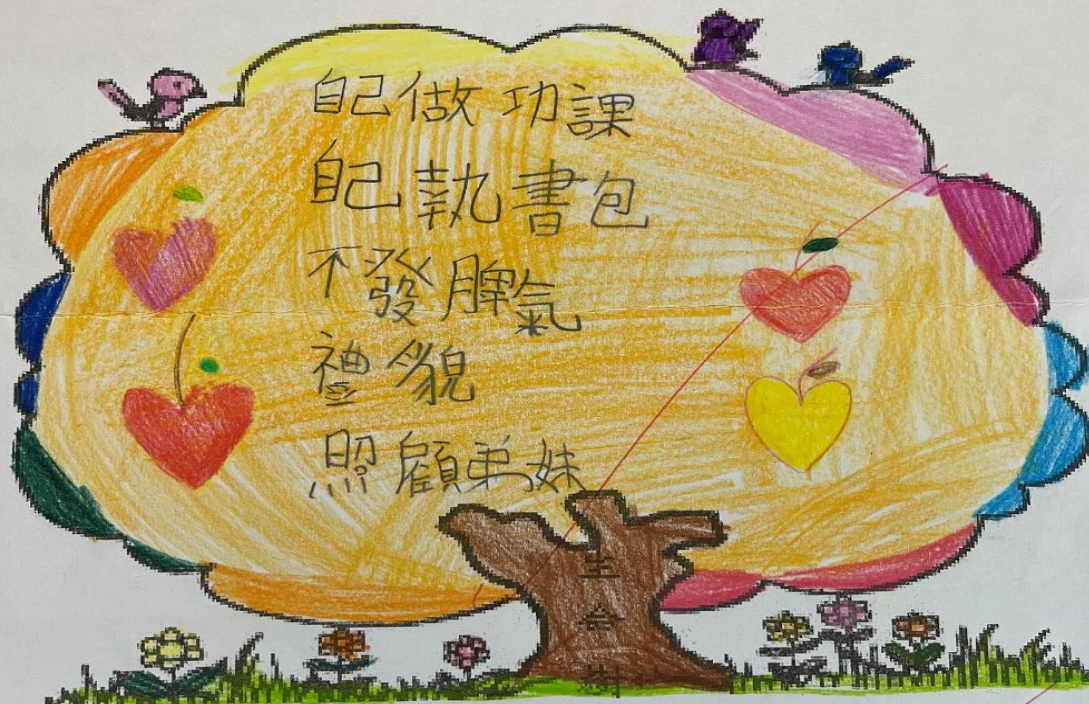 自己做功課
自己執書包
不發脾氣
禮貌
照顧弟妹
生命樹